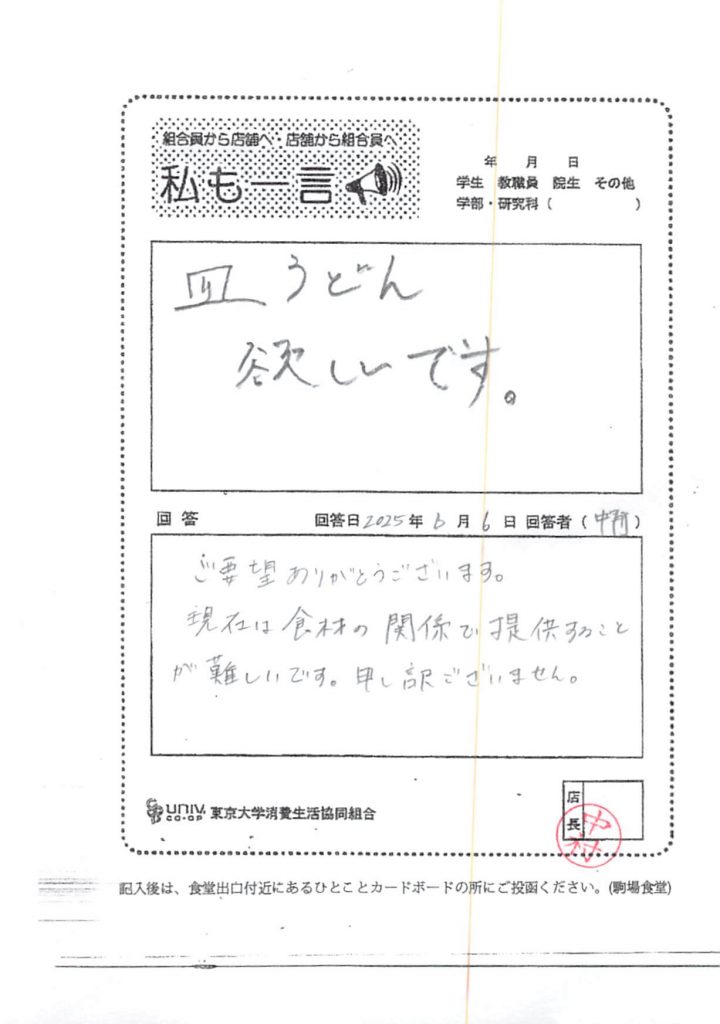 組合員から店舗へ・店舗から組合員へ
私も一言
年 月 日
学生 教職員 院生 その他
学部・研究科( )
皿うどん
欲しいです。
回答 回答日2025年6月6日 回答者(中村)
ご要望ありがとうございます。
現在は食材の関係で提供すること
が難しいです。申し訳ございません。
UNIV. CO-OP 東京大学消費生活協同組合
店長
中村
記入後は、食堂出口付近にあるひとことカードボードの所にご投函ください。(駒場食堂)